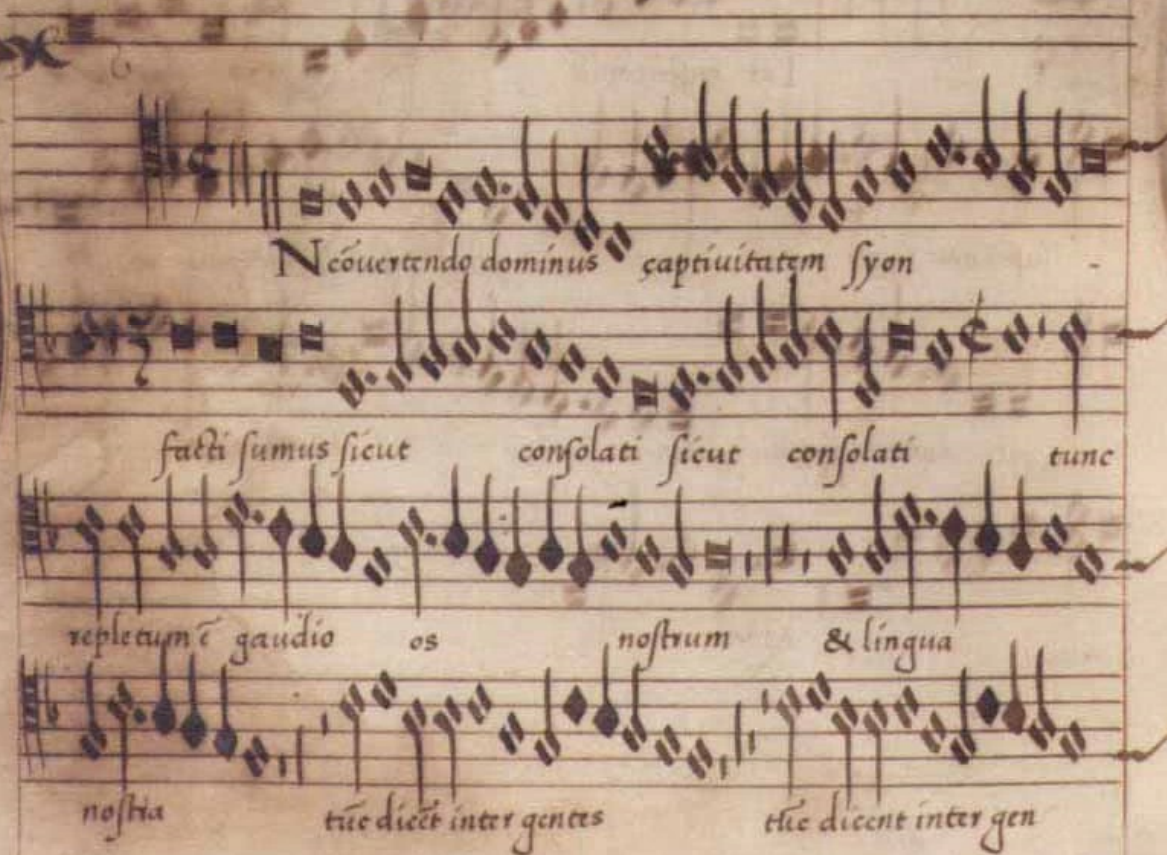 N cōuertendo dominus captiuitatem ſyon
facti ſumus ſicut conſolati ſicut conſolati tunc
repletum ē gaudio os noſtrum & lingua
noſtra tūc dicēt inter gentes tūc dicent inter gen